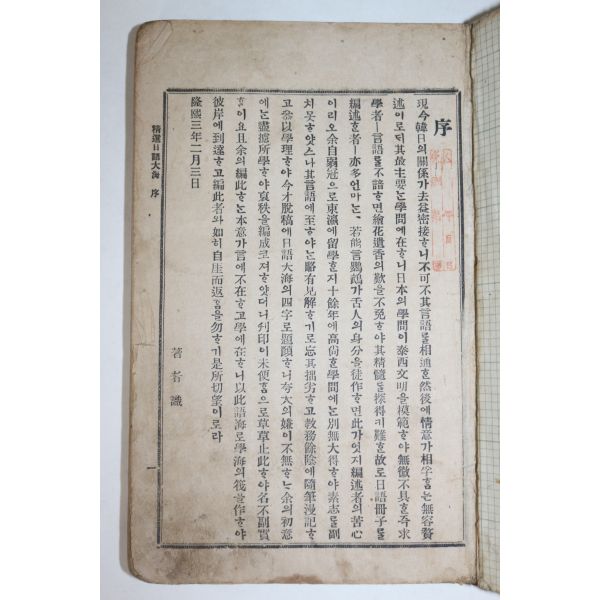 序
現今韓日의關係가去益密接ᄒᆞ니不可不其言語를相通ᄒᆞᆫ然後에情意가相孚ᄒᆞᆷ은無容贅
述이로되其最主要ᄂᆞᆫ學問에在ᄒᆞ니日本의學問이泰西文明을模範ᄒᆞ야無微不具ᄒᆞᆫ즉求
學者ㅣ言語를不諳ᄒᆞ면繪花遺香의歎을不免ᄒᆞ야其精髓를探得키難ᄒᆞᆫ故로日語冊子를
編述ᄒᆞᆫ者ㅣ亦多언마ᄂᆞᆫ若能言鸚鵡가舌人의身分을徒作ᄒᆞ면此가엇지編述者의苦心
이리오余自弱冠으로東瀛에留學ᄒᆞᆫ지十餘年에高尙ᄒᆞᆫ學問에ᄂᆞᆫ別無大得ᄒᆞ야素志를副
치못ᄒᆞ얏스나其言語에至ᄒᆞ야ᄂᆞᆫ略有見解ᄒᆞ기로忘其拙劣ᄒᆞ고敎務餘陰에隨筆漫記ᄒᆞ
고參以學理ᄒᆞ야今才脫稿에日語大海의四字로題顔ᄒᆞ니夸大의嫌이不無ᄒᆞᄂᆞ余의初意
에ᄂᆞᆫ盡攄所學ᄒᆞ야裒秩을編成코져ᄒᆞ얏더니刊印이未便ᄒᆞᆷ으로草草止此ᄒᆞ야名不副實
ᄒᆞᆷ이요且余의編此ᄒᆞᆫ本意가言에不在ᄒᆞ고學에在ᄒᆞ니以此語海로學海의筏을作ᄒᆞ야
彼岸에到達ᄒᆞ고編此者와如히自厓而返ᄒᆞᆷ을勿ᄒᆞ기是所切望이로라
隆熙三年二月三日
著者識
精選日語大海 序
一